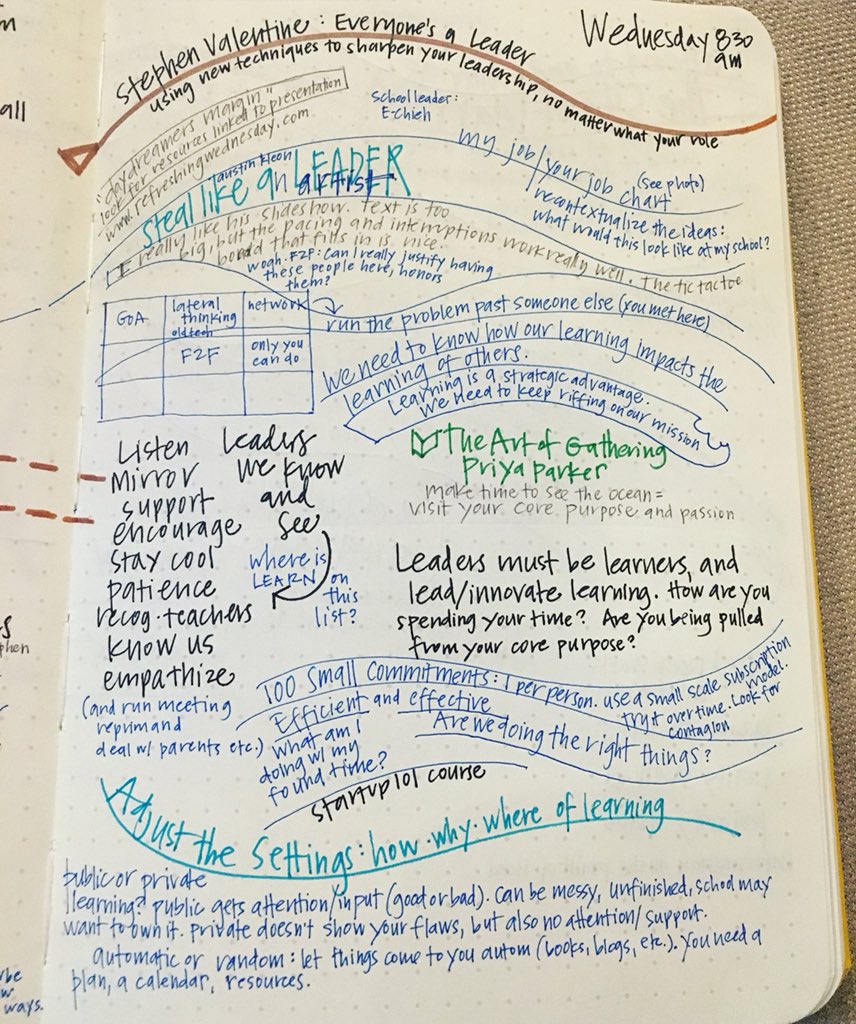 Stephen Valentine: Everyone's a Leader
Wednesday 830
am
using new techniques to sharpen your leadership, no matter what your role
all
"daydreamers margin"
look for resources linked to presentation
www.refreshingwednesday.com
School leader:
E-Chieh
my job/your job
chart
(see photo)
recontextualize the ideas:
what would this look like at my school?
austin kleon
steal like an artist
LEADER
I really like his slideshow. Text is too
big, but the pacing and interruptions work really well. The tictactoe
board that fills in is nice.
woah. F2F: Can I really justify having
these people here, honors
them?
GOA
lateral
thinking
old tech
network
F2F
only you
can do
run the problem past someone else (you met here)
We need to know how our learning impacts the
learning of others.
Learning is a strategic advantage.
We need to keep riffing on our mission
Listen
Mirror
support
encourage
stay cool
patience
recog. teachers
know us
empathize
(and run meeting
reprimand
deal w/ parents etc.)
Leaders
we know
and
see
where is
LEARN on
this
list?
The Art of Gathering
Priya Parker
make time to see the ocean =
visit your core purpose and passion
Leaders must be learners, and
lead/innovate learning. How are you
spending your time? Are you being pulled
from your core purpose?
100 Small Commitments: 1 per person. use a small scale subscription
model.
try it over time. Look for
contagion
Efficient and effective
Are we doing the right things?
what am I
doing w/ my
found time?
startup 101 course
Adjust the Settings: how·why·where of learning
public or private
learning? public gets attention/input (good or bad). Can be messy, unfinished, school may
want to own it. private doesn't show your flaws, but also no attention/support.
automatic or random: let things come to you autom (books, blogs, etc.). You need a
plan, a calendar, resources.
ways.